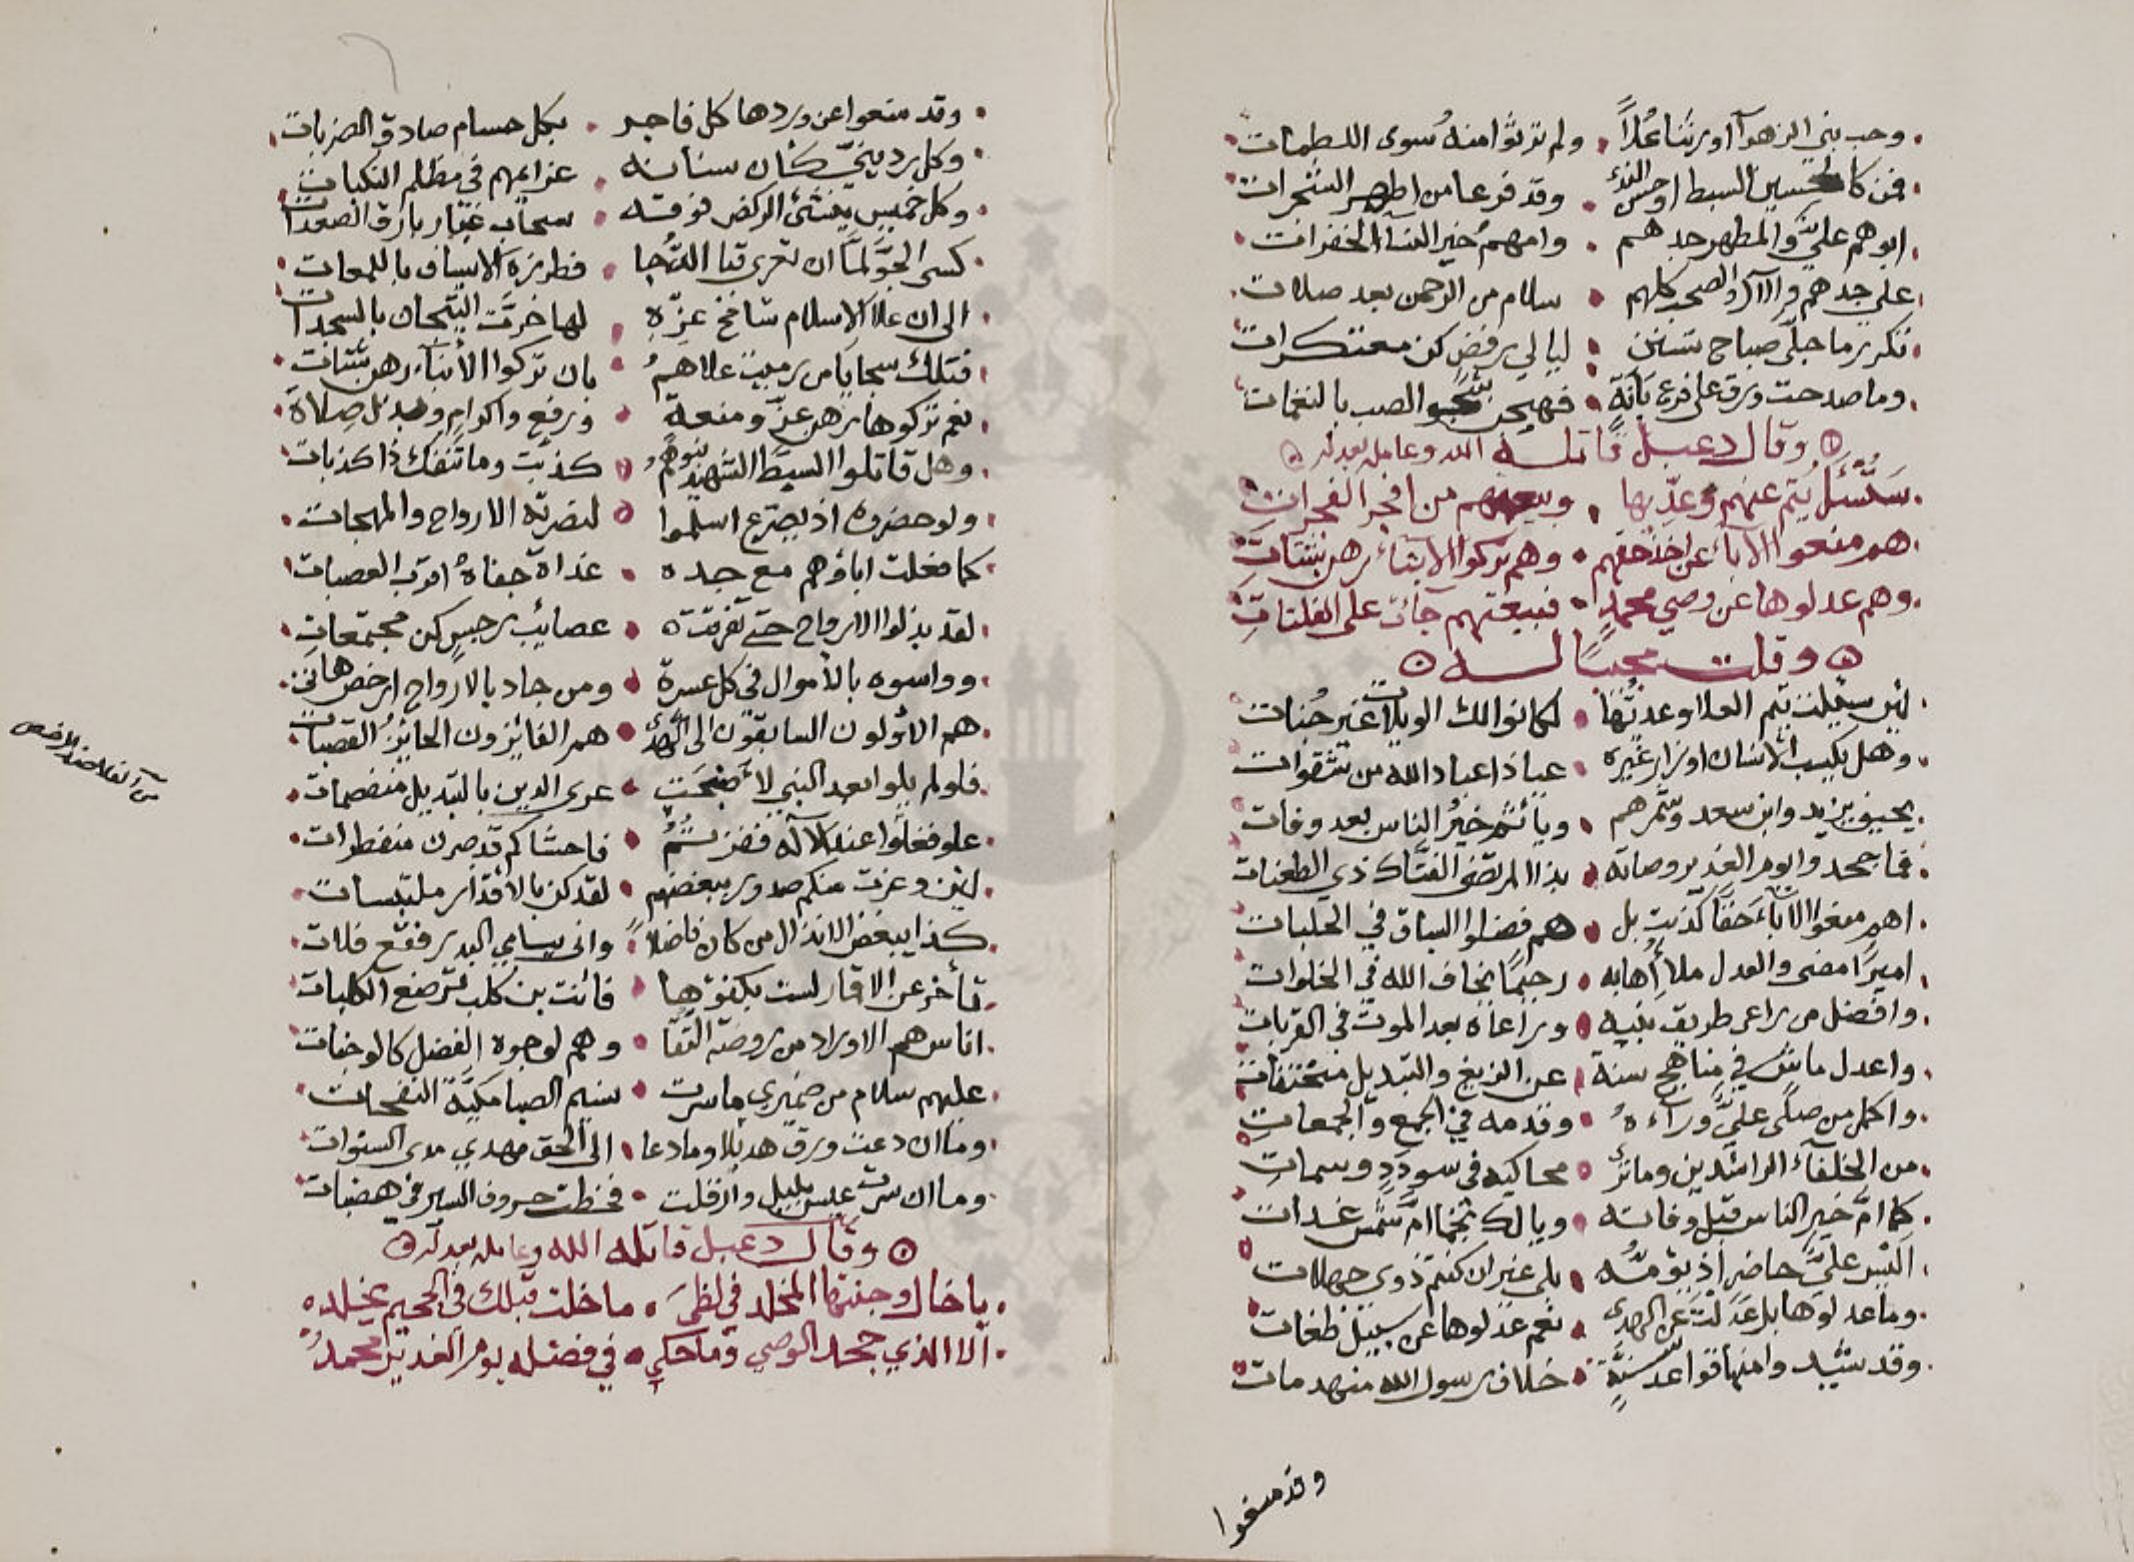 وحب بني الزهرآ اورثنا علاً ولم ترثوا منه سوى اللطمات
فمن كالحسين السبط او حسن الندى وقد فرعا من اطهر الشجرات
ابوهم علي والمطهر جدهم وامهم خير النسآ الخفرات
على جدهم والآل والصحب كلهم سلام من الرحمن بعد صلات
تكرر ما جلى صباح تسنن ليالي رفض كن معتكرات
وما صدحت ورق على فرع بانة فهيجن شجو الصب بالنغمات
وقال دعبل قاتله الله وعامله بعدله
ستسئل تيم عنهم وعديها وبيعتهم من افجر الفجرات
هم منعوا الابآء عن اخذ حقهم وهم تركوا الابنآء رهن شتات
وهم عدلوها عن وصي محمد فبيعتهم جآئت على الفلتات
وقلت مجيبًا له
لئن سئلت تيم العلا وعديها لكانوا لك الويلات غير جنات
وهل يكسب الانسان اوزار غيره عياذا عباد الله من شقوات
يزيد وابن سعد وشمرهم خير الناس بعد وفات
فما جحدوا يوم الغدير وصاته بذا المرتضى الفتاك ذي الطعنات
اهم منعوا الابآء حقًا كذبت بل هم فضلوا السباق في الحلبات
اميرًا مضى والعدل ملأ اهابه رحيمًا يخاف الله في الخلوات
وافضل من راعى طريق نبيه وراعاه بعد الموت في القربات
واعدل ماش في مناهج سنة عن الزيغ والتبديل
واكمل من صلى علي ورآءه وقدمه في الجمع والجمعات
من الخلفآء الراشدين محاكيه في سودد وسمات
كما ام خير الناس قبل وفاته ويا لك نجمًا ام شمس غدات
اليس علي حاضر اذ يؤمه بلى غير ان كنتم ذوي جهلات
وما عدلوها بل عدلت عن الهدى نعم عدلوها عن سبيل طغات
وقد شيد وا منها قواعد سنة خلاف رسول الله منهدمات
وقد منعوا
وقد منعوا عن وردها كل فاجر بكل حسام صادق الضربات
وكل رديني كأن سنانه عزايمهم في مظلم النكبات
وكل خميس ينشئ الركض فوقه سحاب غبار بارق الصعدات
كسى الجو لما ان تعرى قبا الدجا فطرزه الاسياف باللمعات
الى ان علا الاسلام شامخ عزة لها خرت التيجان بالسجدات
فتلك سجايا من رميت علاهم بان تركوا الأبنآء رهن شتات
نعم تركوها رهن عز ومنعة ورفع واكرام وبذل صلاة
وهل قاتلوا السبط الشهيد بنوهم كذبت وما تنفك ذا كذبات
ولو حضروه اذ يصرع اسلموا لنصرته الارواح والمهجات
كما فعلت اباؤهم مع جده غداة جفاه اقرب العصبات
لقد بذلوا الارواح حتى تفرقت عصائب رجس كن مجتمعات
وواسوه بالأموال في كل عسرة ومن جاد بالارواح ارخص هاتي
هم الاولون السابقون الى الهدى هم الفائزون الحائزو القصبات
فلو لم يلوا بعد النبي لأضحت عرى الدين بالتبديل منفصمات
علو فعلوا عند الاله فضرتم فاحشاكم قد صرن منفطرات
لئن وغرت منكم صدور ببغضهم لقد كن بالاقذار ملتبسات
كذا يبغض الانذال من كان فاضلا وانى يسامي البدر فقع فلات
تأخر عن الاقمار لست بكفوها فانت بن كلب ترضع الكلبات
اناس هم الاوراد من روضة التقا وهم لوجوه الفضل كالوجنات
عليهم سلام من ضميري ما سرت نسيم الصبا مكية النفحات
وما ان دعت ورق هديلا وما دعا الى الحق مهدي مدى السنوات
وما ان سرت عيس بليل وارقلت فخطت حروف السير في هضبات
وقال دعبل قاتله الله وعامله بعدله
يا خال وجنتها المخلد في لظى ما خلت قبلك في الجحيم يخلد
الا الذي جحد الوصي وما حكى في فضله يوم الغدير محمد